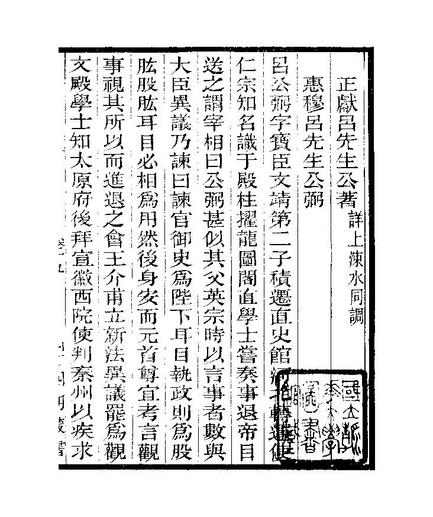 正獻呂先生公著 詳上涑水同調
惠穆呂先生公弼
呂公弼字寶臣文靖第二子積遷直史館北轉運使
仁宗知名識于殿柱擢龍圖閣直學士嘗奏事退帝目
送之謂宰相曰公弼甚似其父英宗時以言事者數與
大臣異議乃諫曰諫官御史為陛下耳目執政則為股
肱股肱耳目必相為用然後身安而元首尊宜考言觀
事視其所以而進退之會王介甫立新法異議罷為觀
文殿學士知太原府後拜宣徽西院使判秦州以疾求
四明叢書